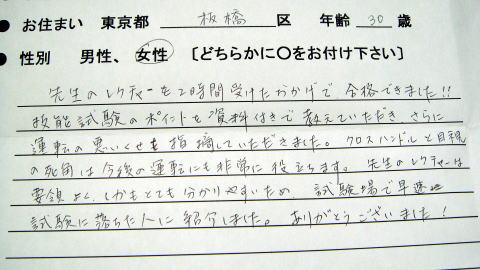 ● お住まい 東京都 板橋 区 年齢 30 歳
● 性別 男性、女性 〔どちらかに〇をお付け下さい〕
先生のレクチャーを2時間受けたおかげで合格できました!!
技能試験のポイントを資料付きで教えていただき、さらに
運転の悪いくせも指摘していただきました。クロスハンドルと目視
の死角は今後の運転にも非常に役立ちます。先生のレクチャーは
要領よく、しかもとても分かりやすいため、試験場で早速
試験に落ちた人に紹介しました。ありがとうございました!